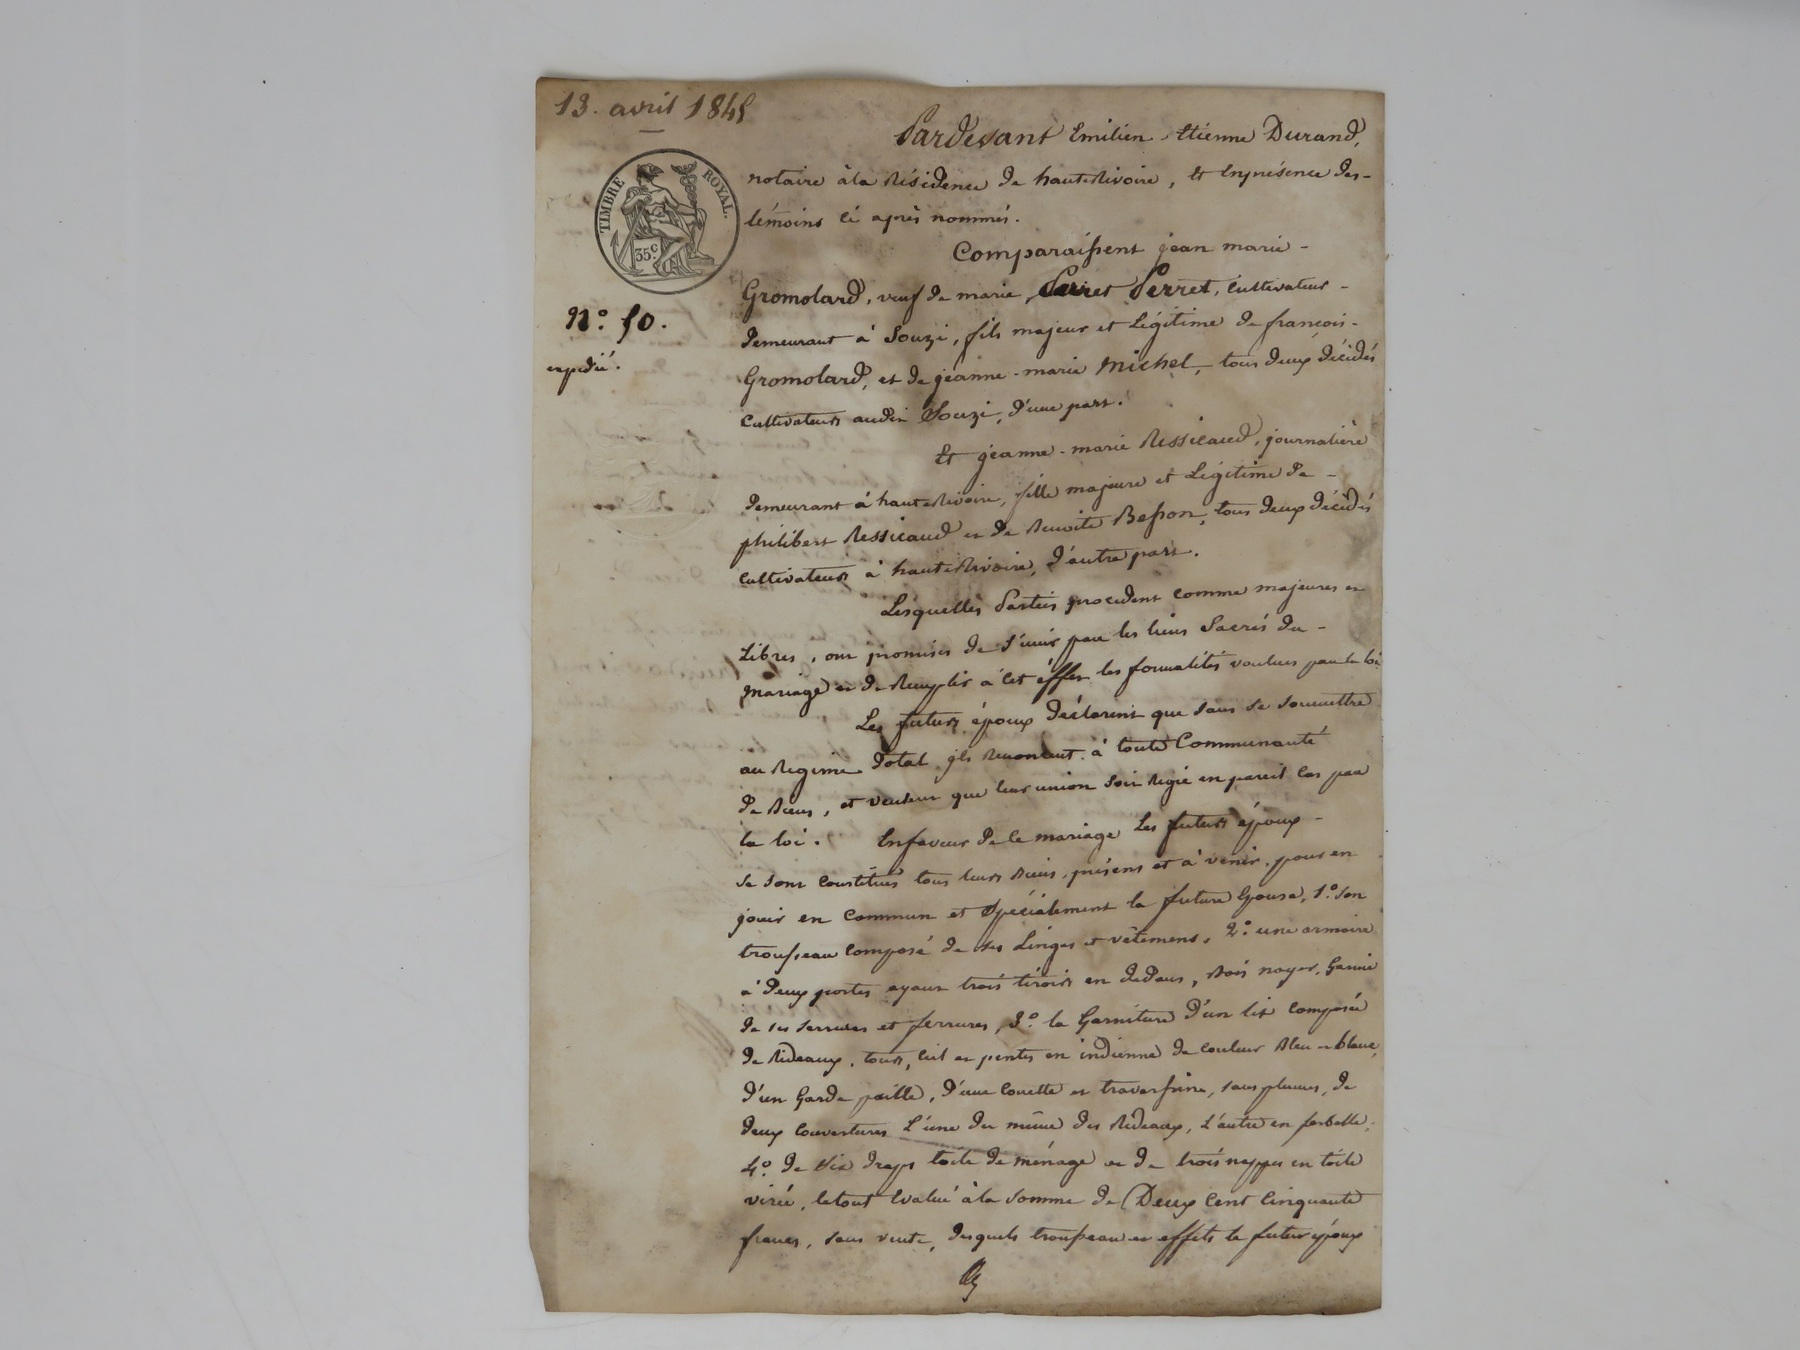 13. avril 1845
Pardevant Emilien Etienne Durand,
notaire à la Résidence de hauterivoire, et enprésence des-
témoins ci après nommés.
TIMBRE ROYAL.
35 c.
Comparaissent jean marie -
Gromolard, veuf de marie Perret, cultivateur -
N.° 50.
demeurant à Souzi, fils majeur et Légitime de françois -
expédié.
Gromolard, et de jeanne-marie Michel, tous deux décédés
cultivateurs audit Souzi, d'une part.
Et jeanne-marie Ressicaud, journalière
demeurant à hauterivoire, fille majeure et Légitime de -
philibert Ressicaud et de Benoite Besson, tous deux décédés
cultivateurs à hauterivoire, d'autre part.
Lesquelles Parties procédent comme majeures et
Libres, ont promis de s'unir par les liens Sacrés du -
mariage et de Remplir à cet éffet les formalités voulues par la loi
Les futurs époux déclarent que sans se soumettre
au Regime dotal ils Renoncent à toute Communauté
de Biens, et veulent que leur union soit Régie en pareil cas par
la loi. Enfaveur de ce mariage Les futurs époux -
se sont constitués tous leurs Biens, présens et à venir, pour en
jouir en commun et Spécialement la future Epouse, 1.° son
trousseau composé de ses Linges et vêtemens, 2.° une armoire
à deux portes ayant trois tiroirs en dedans, Bois noyer, Garnie
de ses serrures et ferrures, 3.° la Garniture d'un lit composée
de Rideaux, tours, ciel et pentes en indienne de couleur Bleu et blanc,
d'un Garde paille, d'une couette et traversine, sans plumes, de
deux couvertures L'une du même des Rideaux, L'autre en
4.° de six draps toile de ménage et de trois nappes en toile
virée, letout évalué à la somme de Deux cent cinquante
francs, sans vente, desquels trousseau et effets le futur époux